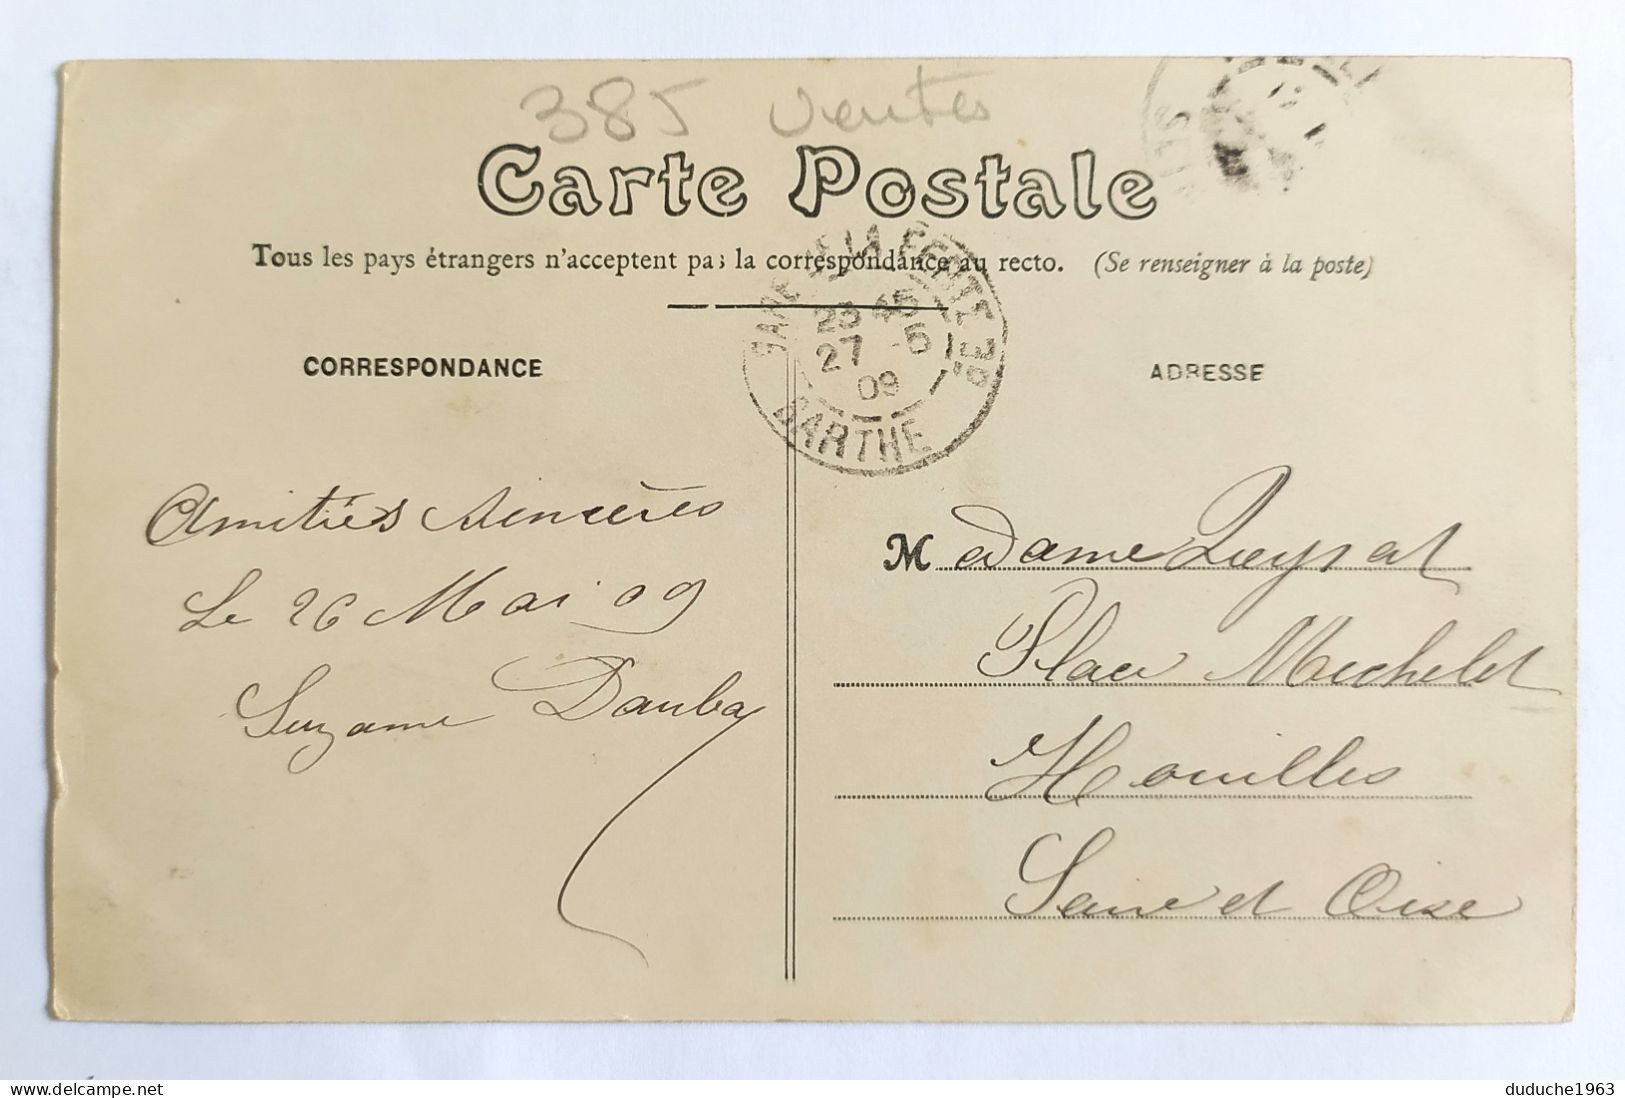 385 Ventes
Carte Postale
Tous les pays étrangers n'acceptent pas la correspondance au recto. (Se renseigner à la poste)
GARE DE LA FERTE
23 45
27 -5
09
SARTHE
CORRESPONDANCE
ADRESSE
Amitiés sincères
Le 26 Mai 09
Suzanne Dauba
Madame
Place Michelet
Houilles
Seine et Oise
delcampe.net
duduche1963